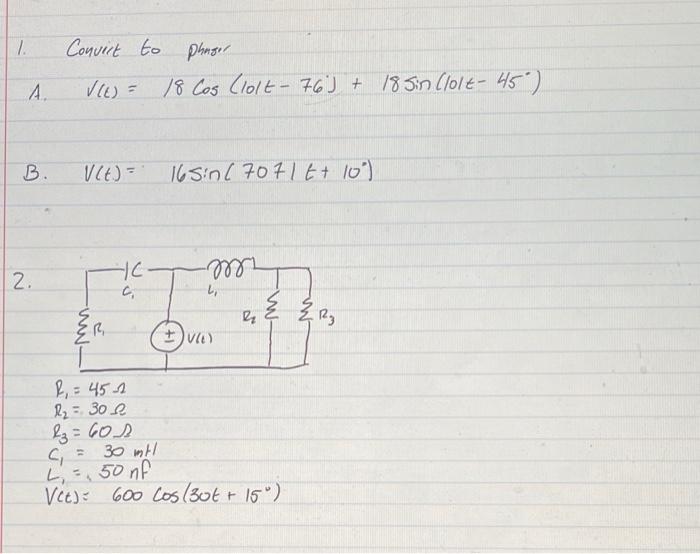 1. Convert to phasor
A. V(t) = 18 Cos (101t - 76°) + 18 Sin (101t - 45°)
B. V(t) = 16 Sin ( 7071 t + 10°)
2.
C₁ L₁
R₁ V(t) R₂ R₃
R₁ = 45 Ω
R₂ = 30 Ω
R₃ = 60 Ω
C₁ = 30 mH
L₁ = 50 nf
V(t) = 600 Cos (30t + 15°)